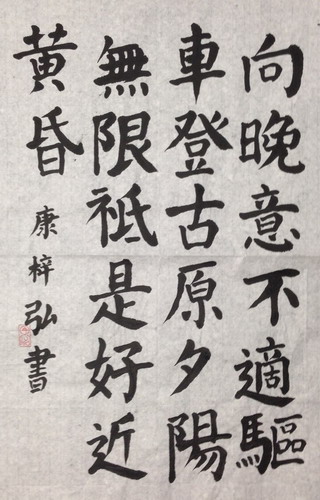 向晚意不適驅
車登古原夕陽
無限祗是好近
黃昏
康梓弘書